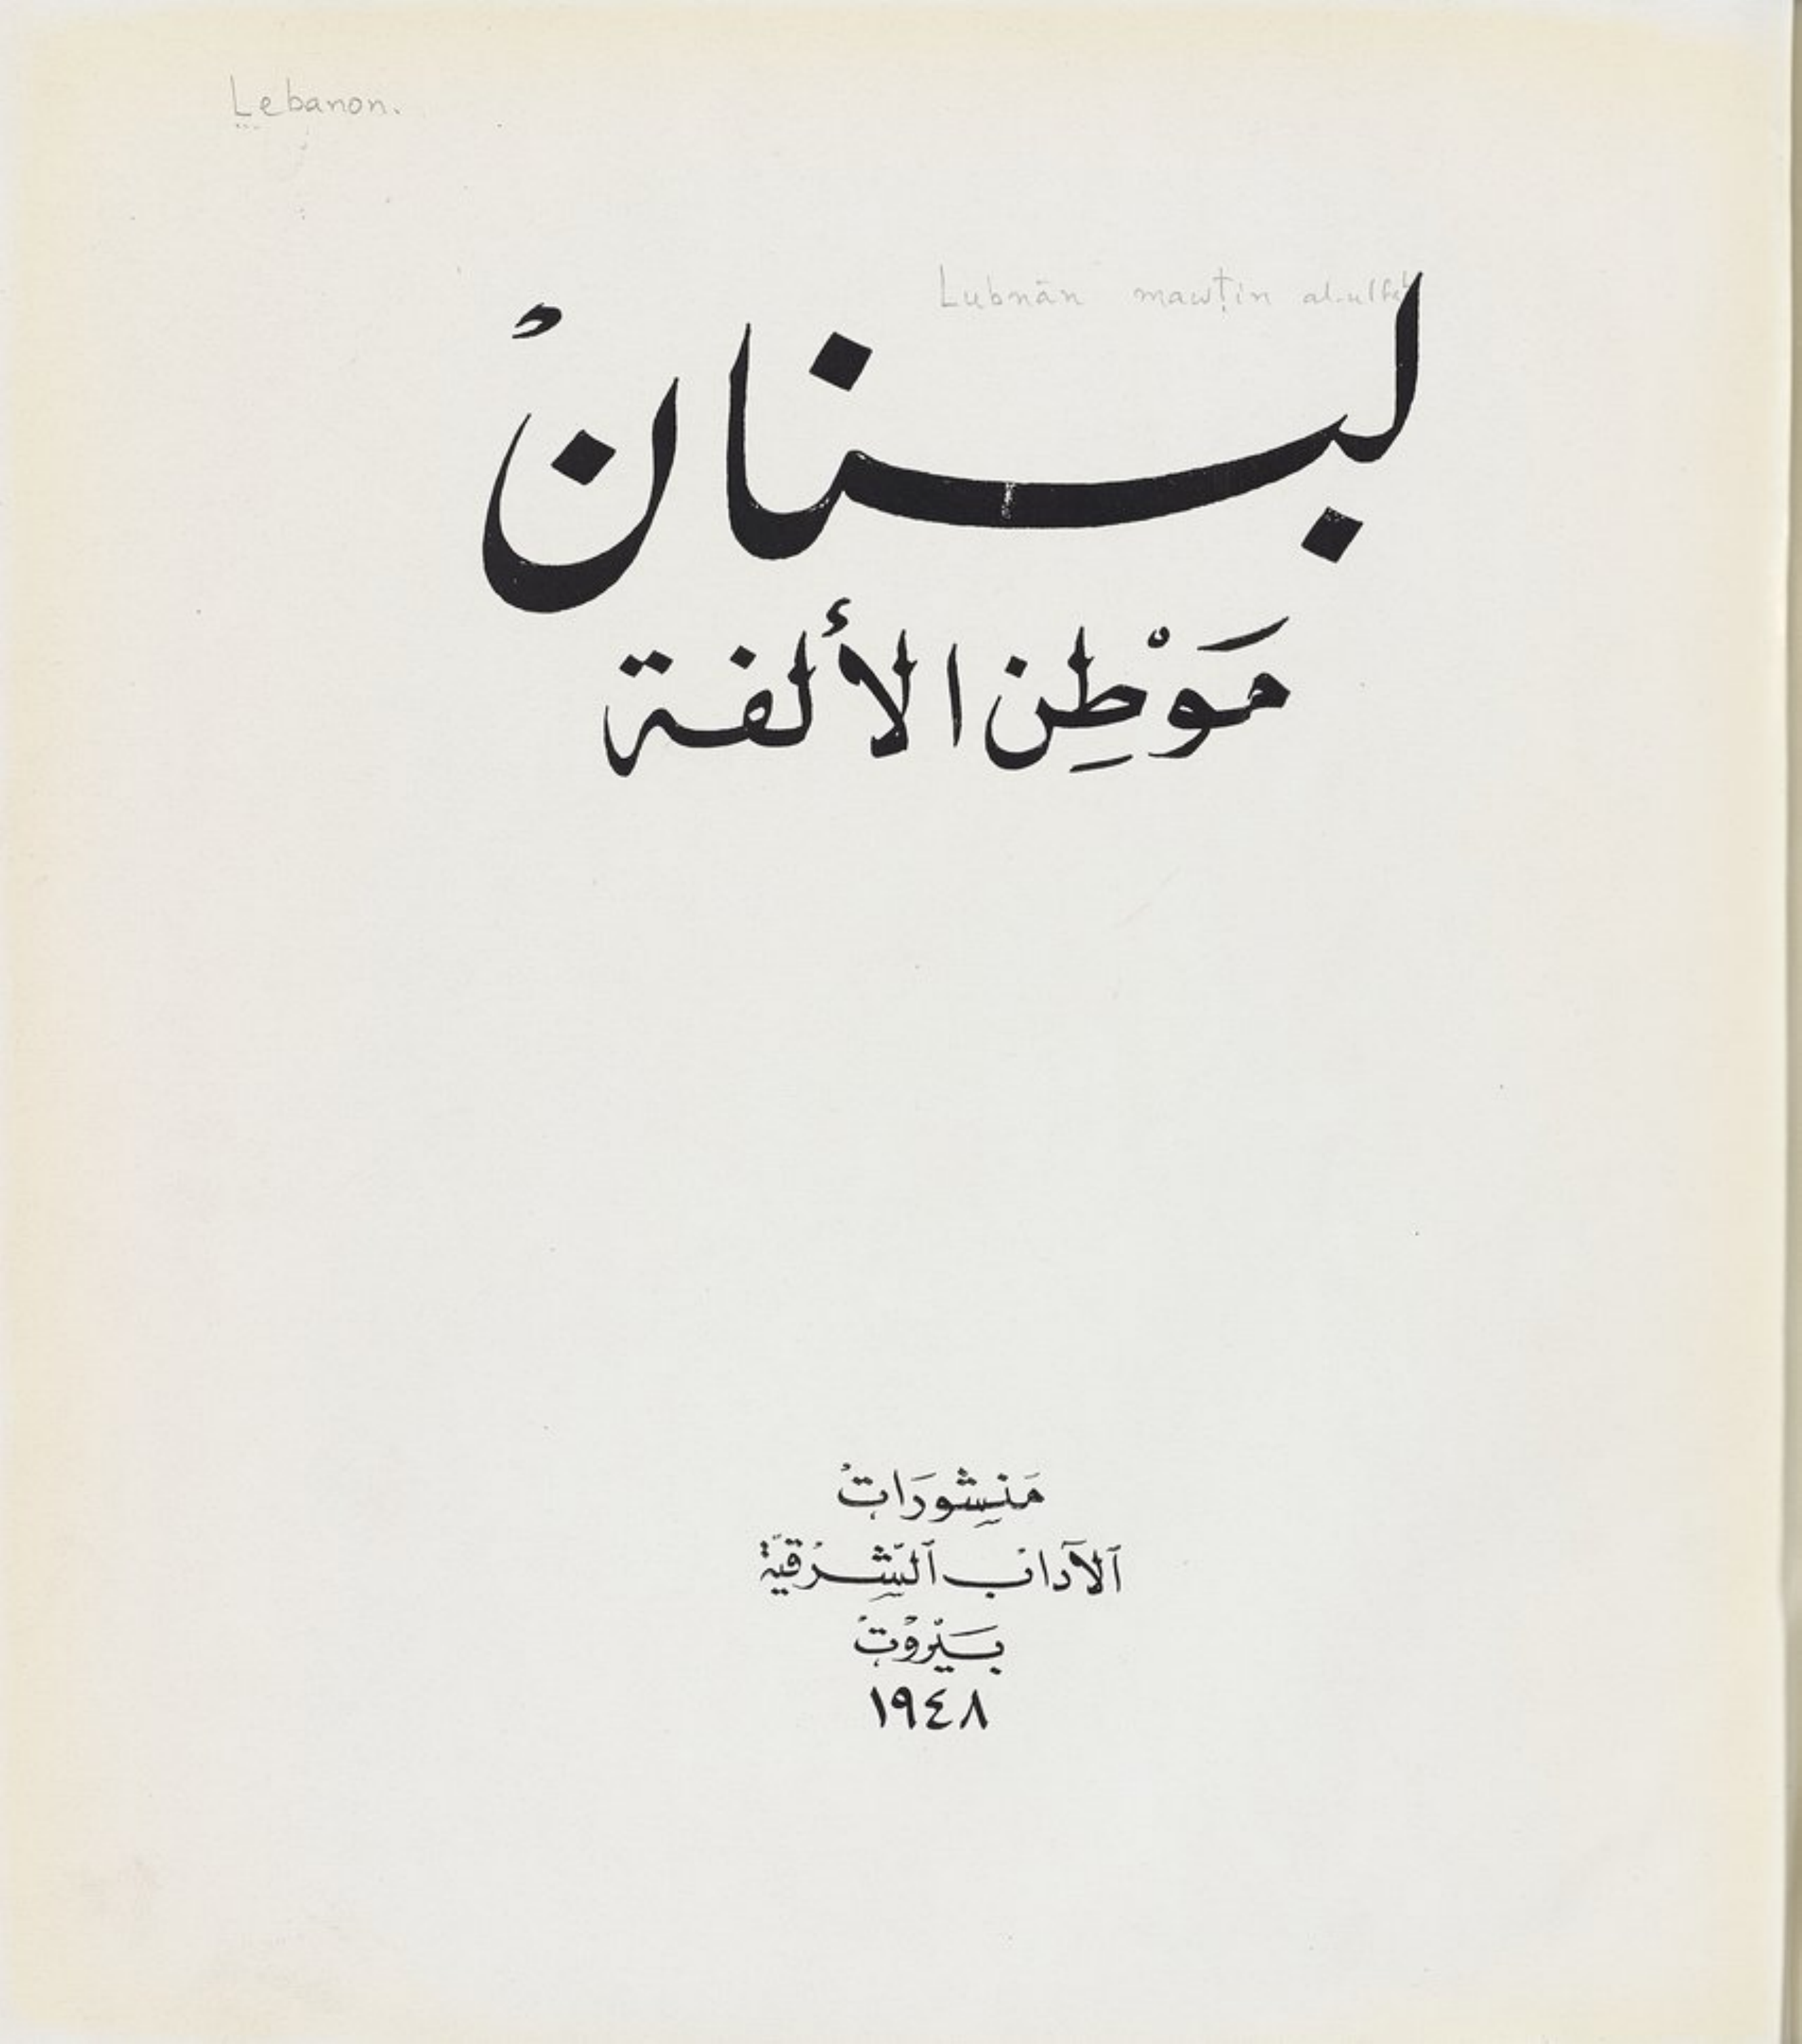 Lebanon.
Lubnān mawṭin al-ulfah
لبنانُ
مَوْطِن الألفة
مَنشِورَاتُ
ٱلآدابُ ٱلشِّرُقيَّة
بَيْرُوتُ
١٩٤٨